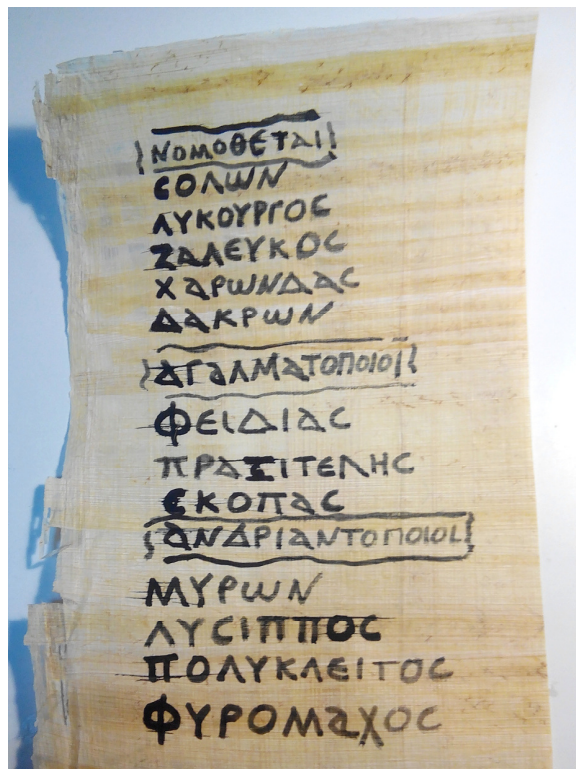 ΝΟΜΟΘΕΤΑΙ
ϹΟΛΩΝ
ΛΥΚΟΥΡΓΟϹ
ΖΑΛΕΥΚΟϹ
ΧΑΡΩΝΔΑϹ
ΔΑΚΡΩΝ
ΑΓΑΛΜΑΤΟΠΟΙΟΙ
ΦΕΙΔΙΑϹ
ΠΡΑΞΙΤΕΛΗϹ
ϹΚΟΠΑϹ
ΑΝΔΡΙΑΝΤΟΠΟΙΟΙ
ΜΥΡΩΝ
ΛΥϹΙΠΠΟϹ
ΠΟΛΥΚΛΕΙΤΟϹ
ΦΥΡΟΜΑΧΟϹ